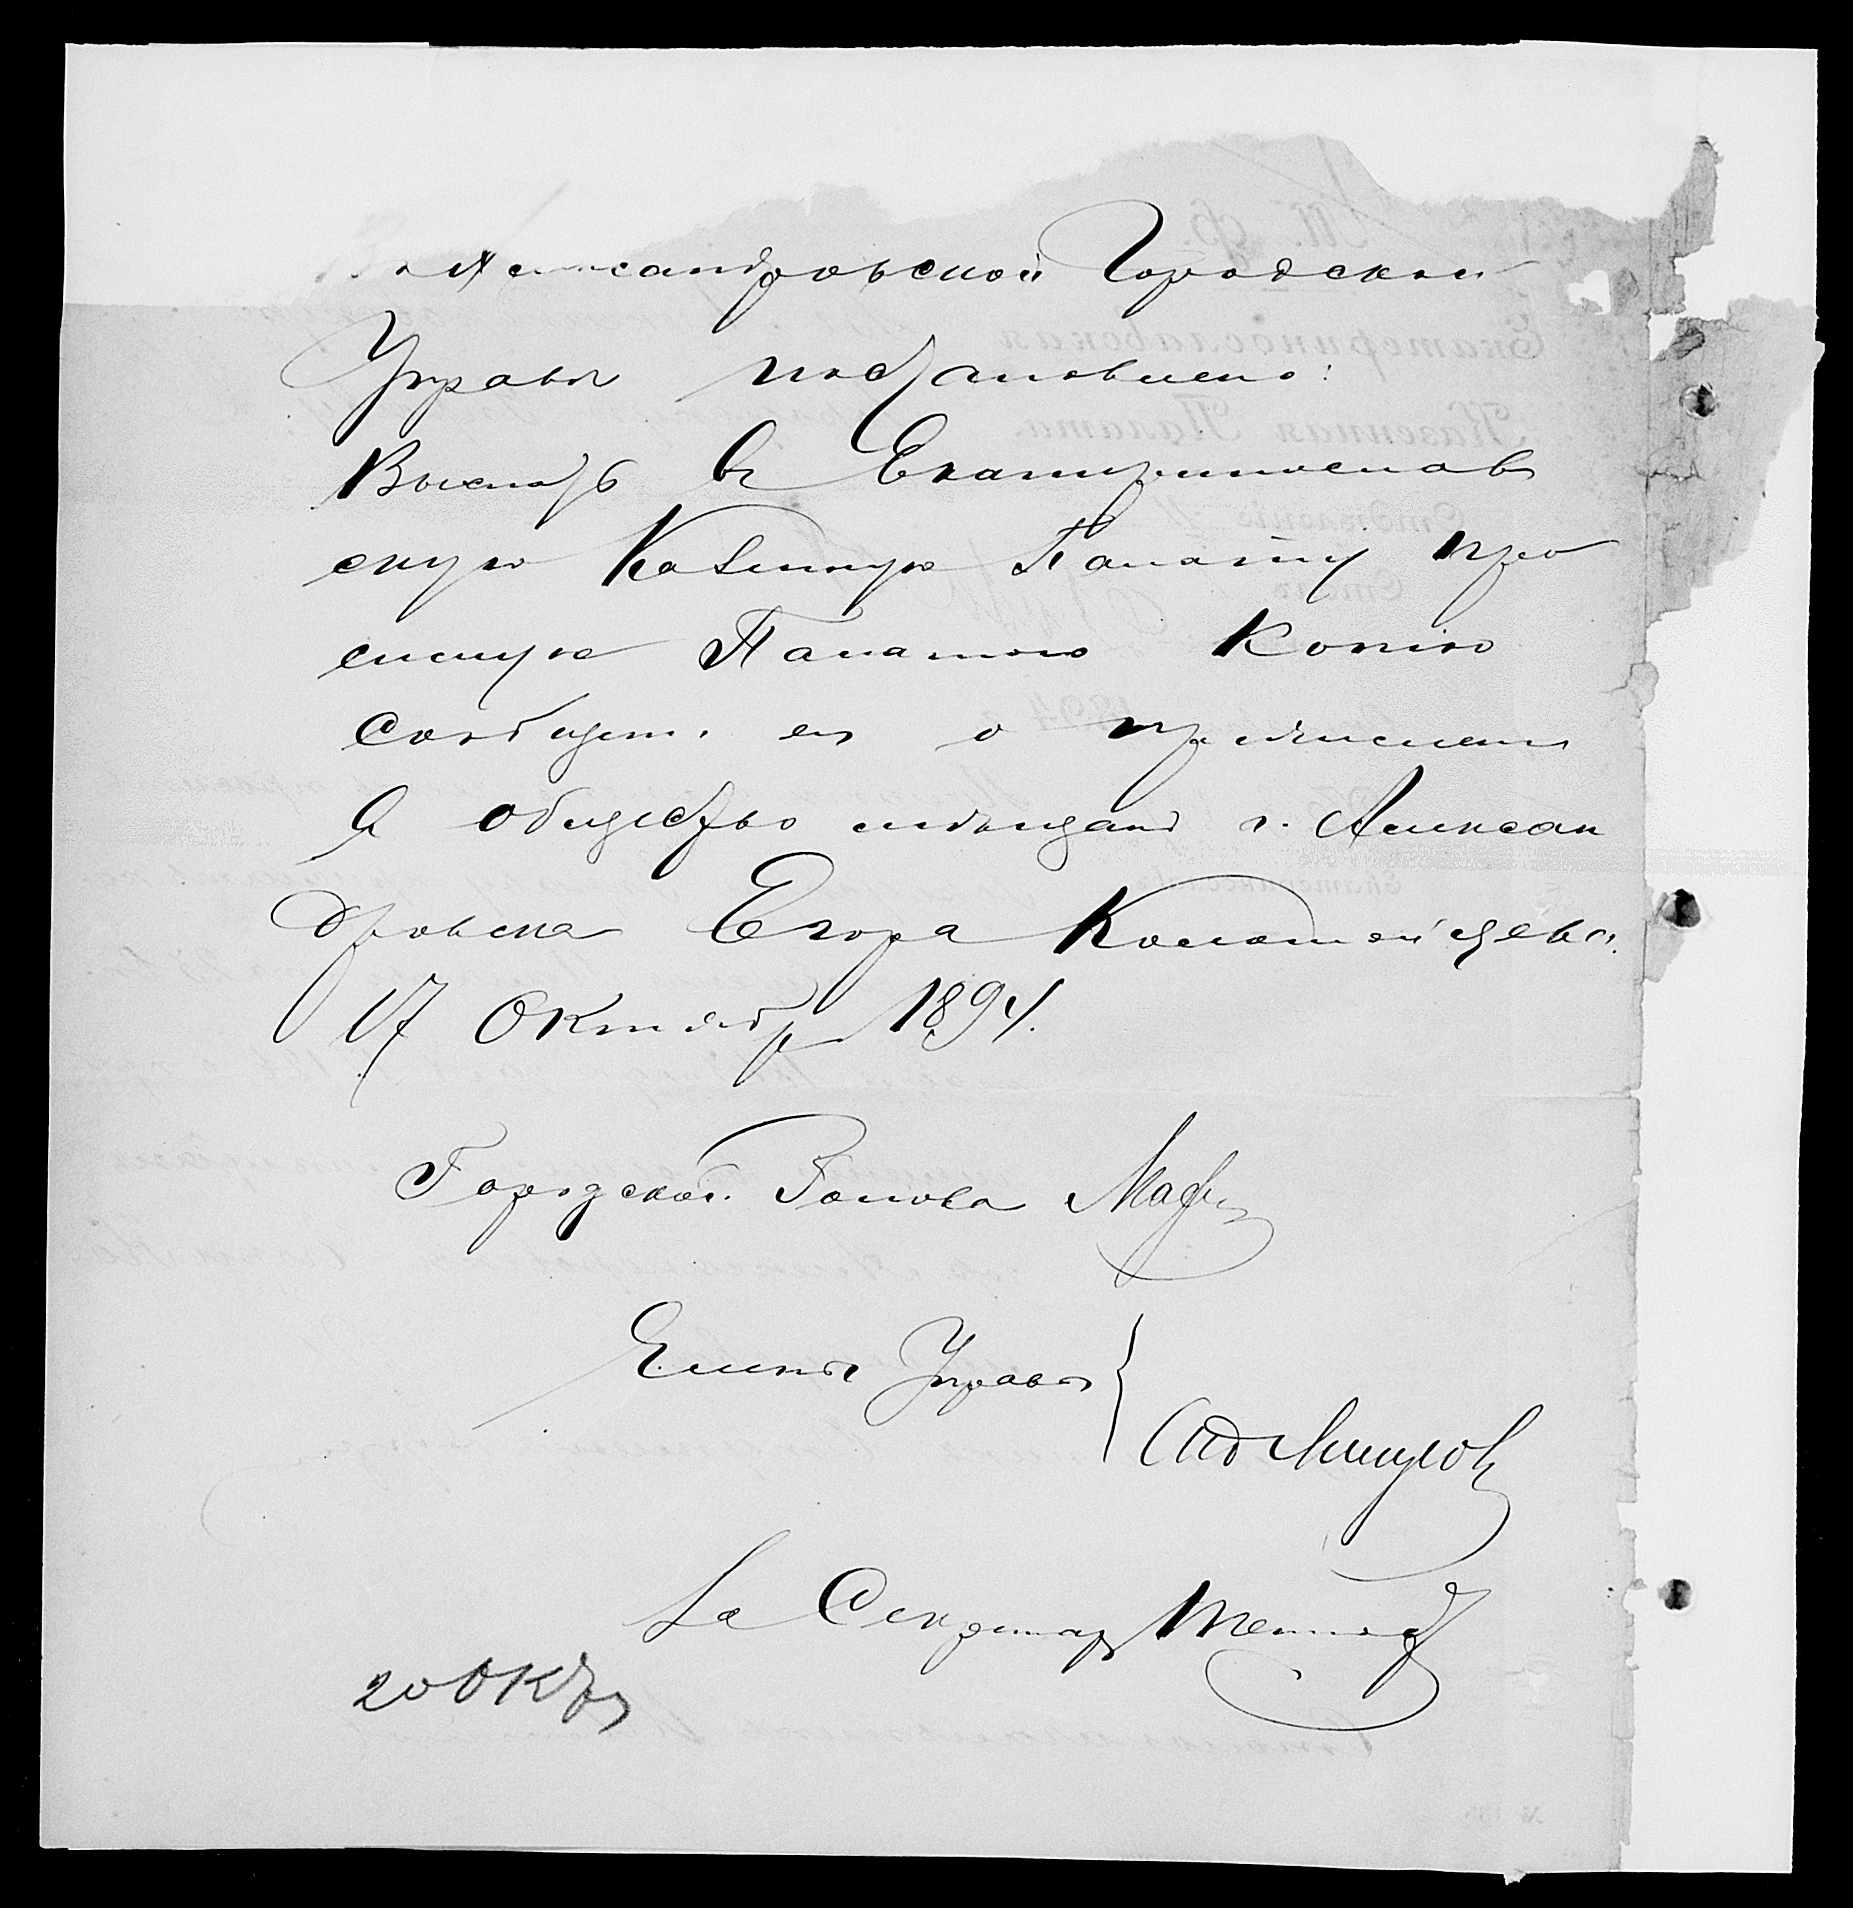 Александровской Городской
Управы постановлено:
Выслать въ Екатеринослав
скую Казенную Палату про
симую Палатою Копію
сообщенія ея о причислении
въ общество мѣщанъ г. Алексан
дровска Егора Коломойцева.
17 Октября 1894.
Городской Голова
Члены Управы
За Секретаря
20 Окт